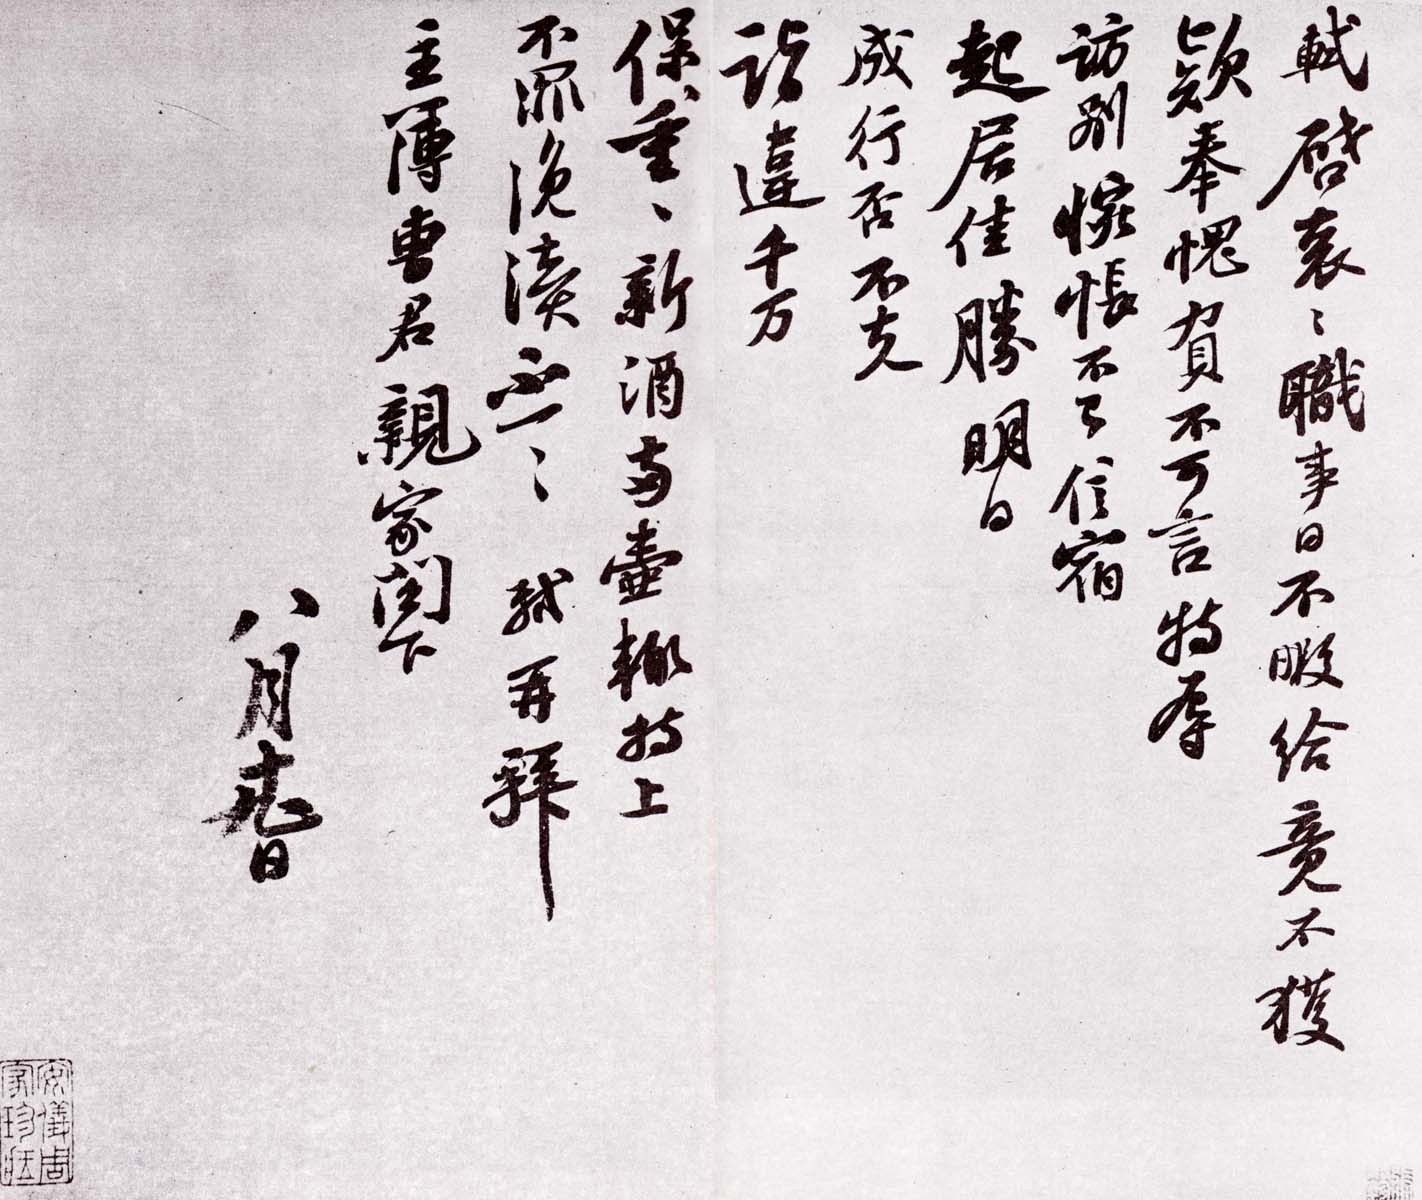 軾啓衮〻職事日不暇給竟不獲
欵奉愧負不可言特辱
訪別惋悵不已信宿
起居佳勝明日
成行否不克
詣違千万
保重〻新酒兩壺輒持上
不罪浼瀆不一〻 軾再拜
主簿曹君親家閤下
八月 日
安儀周
家珍藏